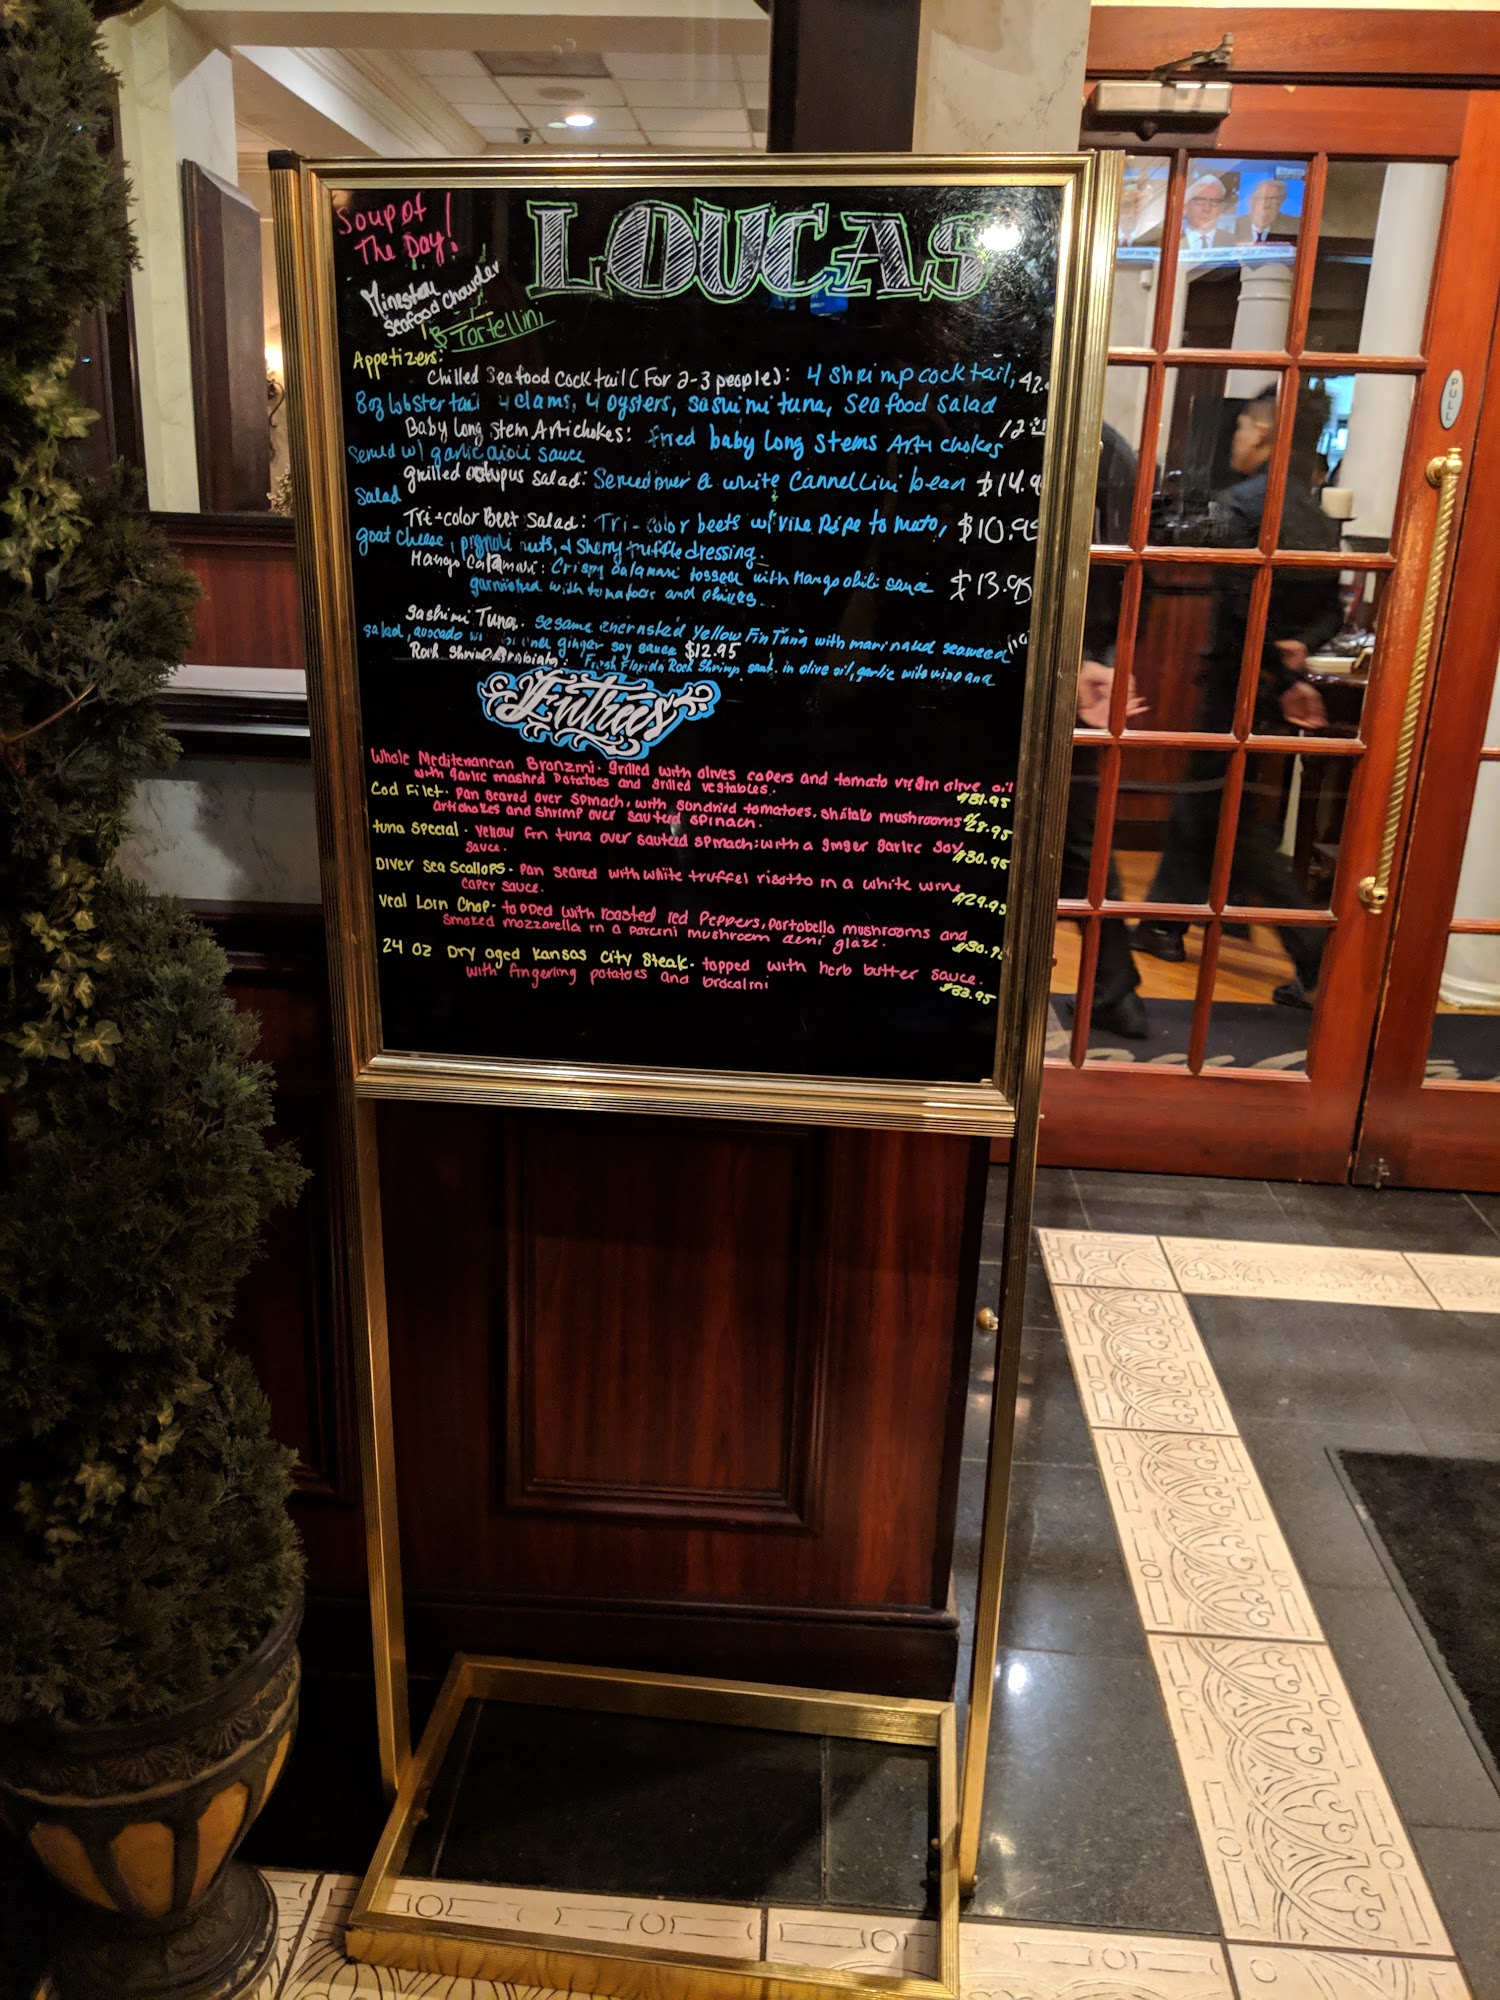 Soup of
The Day!
LOUCAS
Seafood Chowder
Tortellini
Appetizers:
Chilled Seafood Cocktail (For 2-3 people): 4 shrimp cocktail, 42.
8oz lobster tail 4 clams, 4 oysters, sashimi tuna, Seafood Salad
Baby Long Stem Artichokes: fried baby Long Stems Arti chokes 12
Served w/ garlic aioli sauce
grilled octupus salad: Served over a white Cannellini bean $14.9
Salad
Tri-color Beet Salad: Tri-color beets w/ Vine Ripe tomato, $10.95
goat cheese, pignoli nuts, & Sherry truffle dressing.
Mango Calamari: Crispy Calamari tossed with Mango chili sauce $13.95
garnished with tomatoes and chives
Sashimi Tuna. sesame encrusted Yellow Fin Tuna with marinated seaweed
salad, avocado ginger soy sauce $12.95
Rock Shrimp Arrabiata: Fresh Florida Rock Shrimp in olive oil, garlic wite wino and
Entrees
Whole Mediterranean Bronzini. grilled with olives capers and tomato virgin olive oil
with garlic mashed potatoes and grilled vegetables. $31.95
Cod Filet. Pan seared over spinach, with sundried tomatoes, shitake mushrooms $28.95
artichokes and shrimp over sauteed spinach.
tuna special. yellow fin tuna over sauteed spinach: with a ginger garlic soy
sauce. $30.95
Diver Sea Scallops. Pan seared with white truffel risotto in a white wine
caper sauce. $29.95
Veal Loin Chop. topped with roasted red peppers, portobello mushrooms and
smoked mozzarella in a porcini mushroom demi glaze. $30.9
24 oz Dry aged Kansas City Steak. topped with herb butter sauce.
with fingerling potatoes and brocolini $33.95
PULL